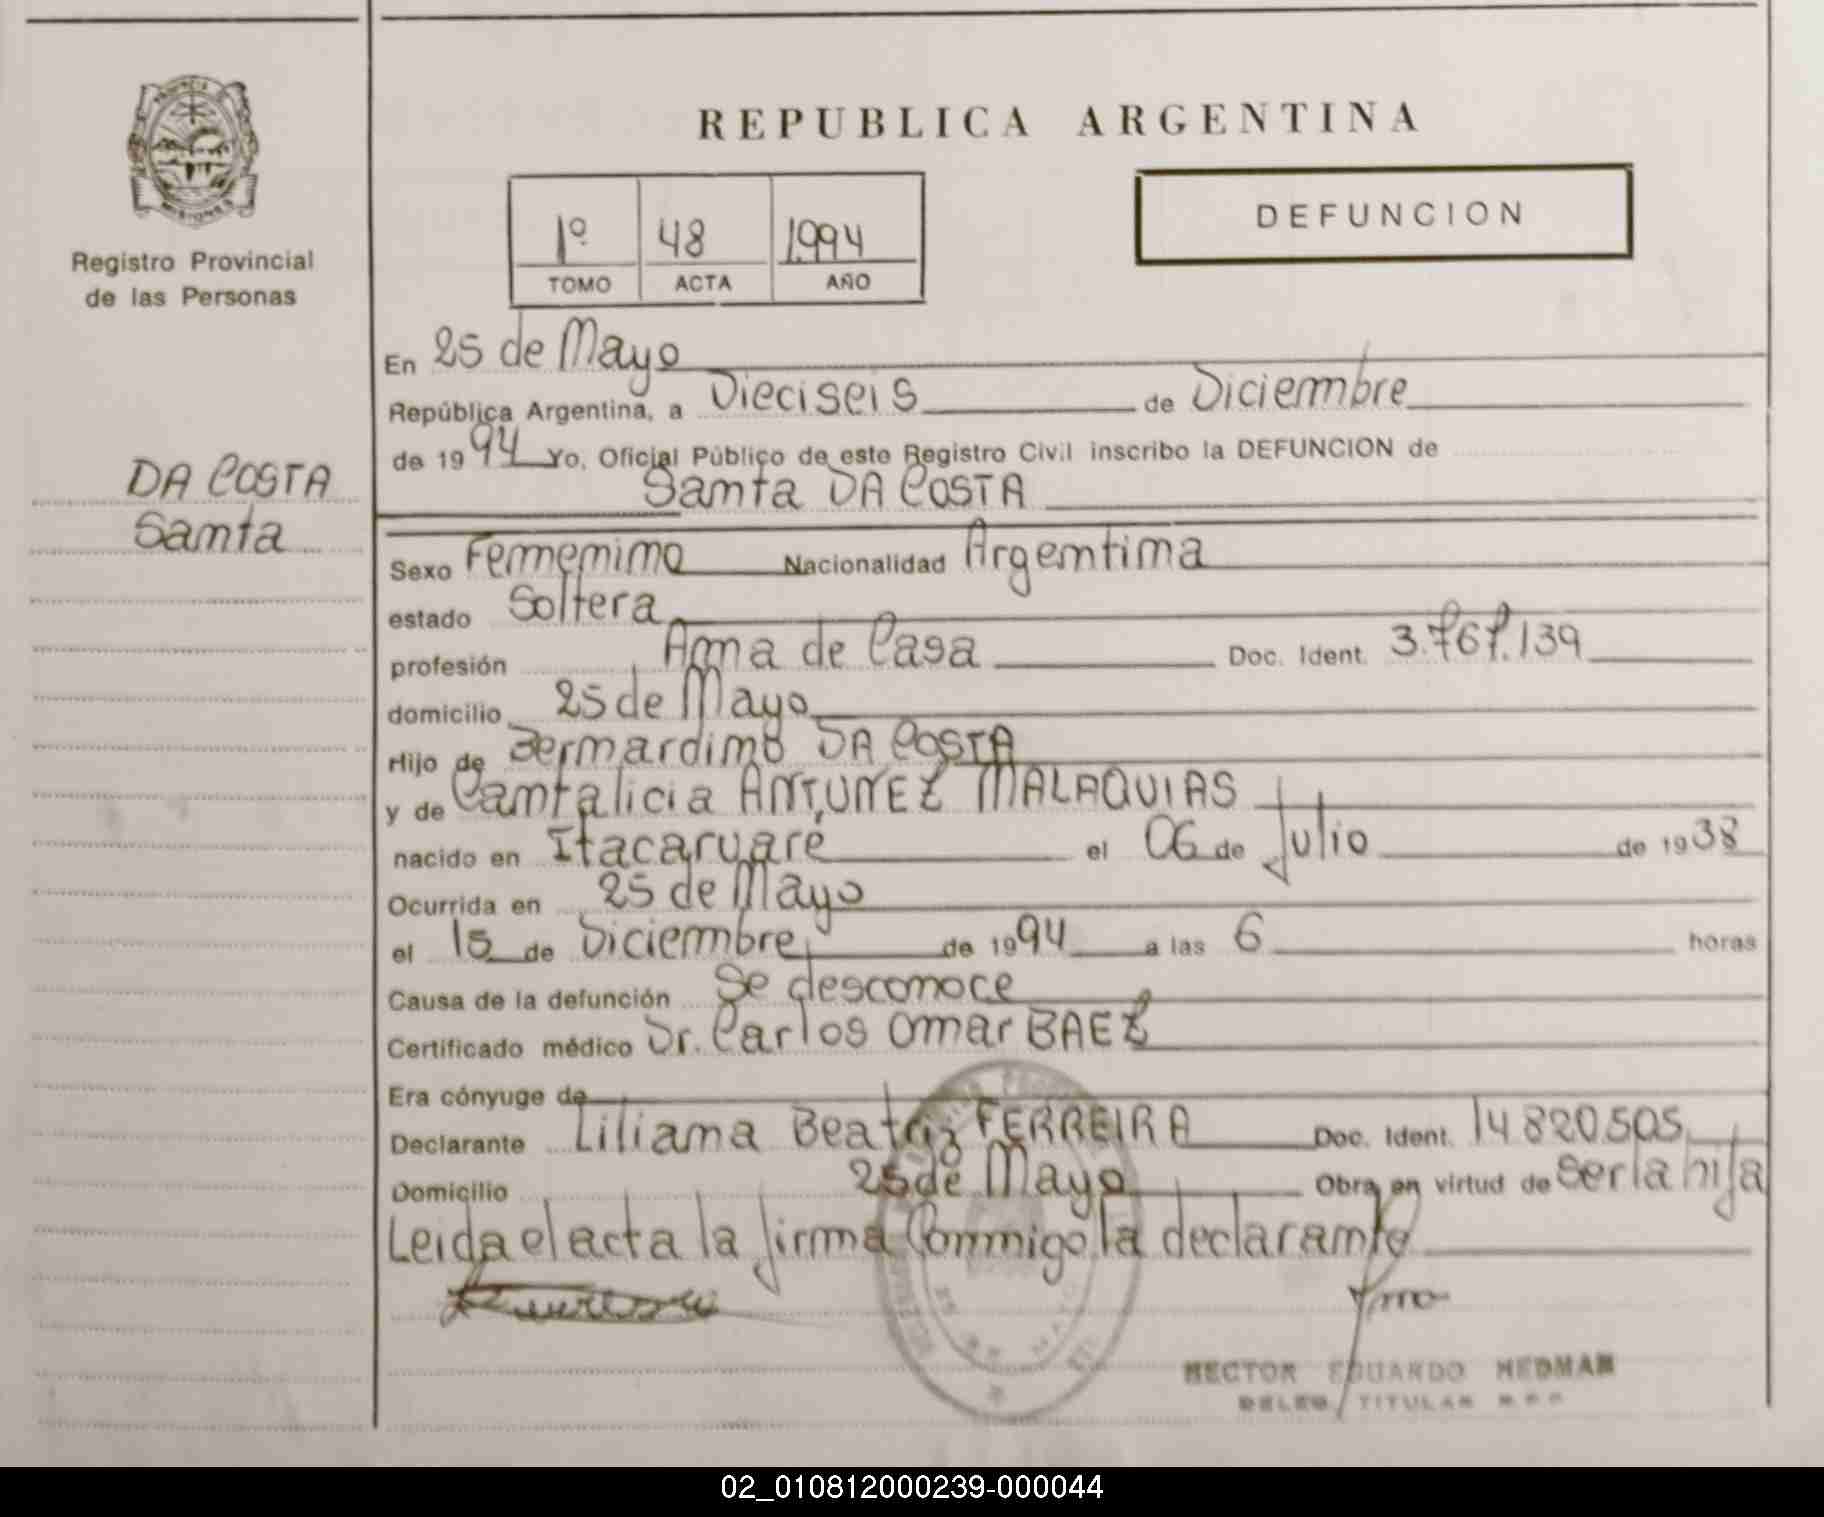 REPUBLICA ARGENTINA
PROVINCIA
MISIONES
Registro Provincial
de las Personas
1º 48 1.994
TOMO ACTA AÑO
DEFUNCION
DA COSTA
Santa
En 25 de Mayo
República Argentina, a Dieciseis de Diciembre
de 1994 Yo, Oficial Público de este Registro Civil inscribo la DEFUNCION de
Santa DA COSTA
Sexo Femenino Nacionalidad Argentina
estado Soltera
profesión Ama de Casa Doc. Ident. 3.767.139
domicilio 25 de Mayo
Hijo de Bernardino DA COSTA
y de Cantalicia ANTUNEZ MALAQUIAS
nacido en Itacaruaré el 06 de Julio de 1938
Ocurrida en 25 de Mayo
el 15 de Diciembre de 1994 a las 6 horas
Causa de la defunción Se desconoce
Certificado médico Dr. Carlos Omar BAEZ
Era cónyuge de
Declarante Liliana Beatriz FERREIRA Doc. Ident. 14820.505
Domicilio 25 de Mayo Obra en virtud de Ser la hija
Leida el acta la firma Conmigo la declarante
25 DE MAYO
HECTOR EDUARDO HEDMAN
DELEG. TITULAR
02_010812000239-000044